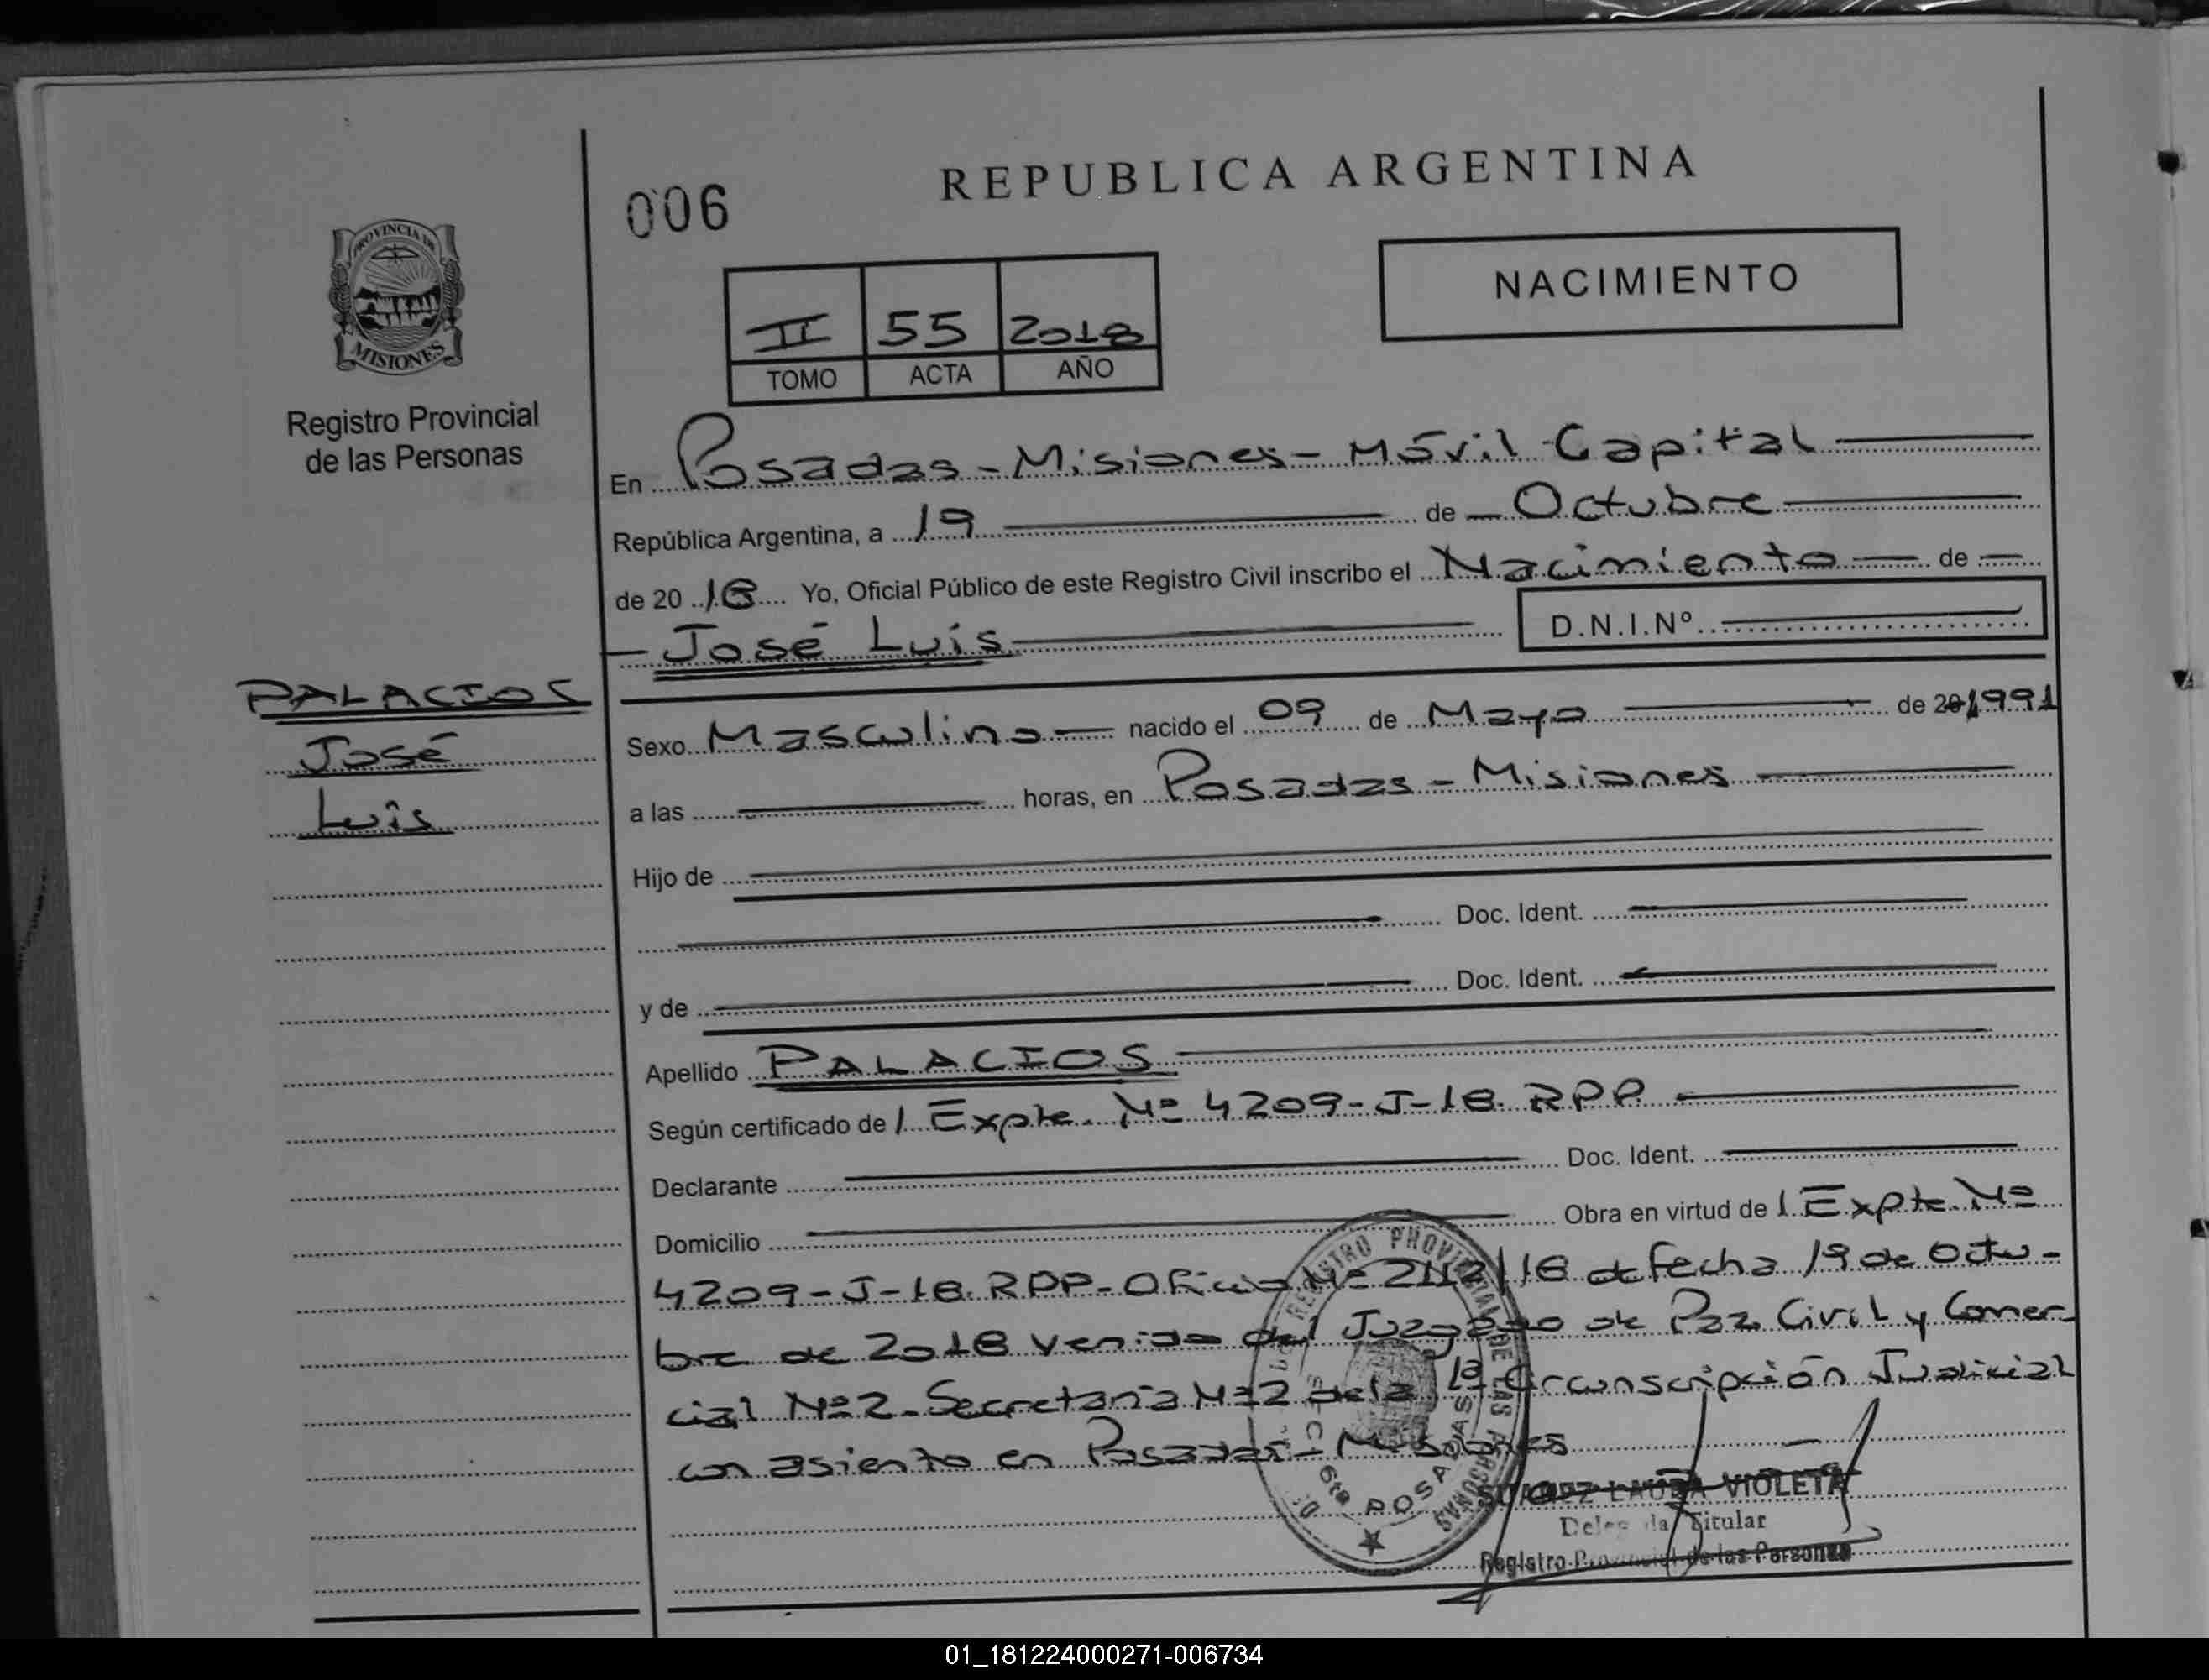 REPUBLICA ARGENTINA
006
PROVINCIA DE
MISIONES
Registro Provincial
de las Personas
II 55 2018
TOMO ACTA AÑO
NACIMIENTO
En Posadas - Misiones - Móvil Capital
República Argentina, a 19 de Octubre
de 20 18 Yo, Oficial Público de este Registro Civil inscribo el Nacimiento de
José Luis
D.N.I.Nº
PALACIOS
José
Luis
Sexo Masculino nacido el 09 de Mayo de 20 1991
a las horas, en Posadas - Misiones
Hijo de
Doc. Ident.
y de Doc. Ident.
Apellido PALACIOS
Según certificado de / Expte. Nº 4209-J-18. RPP
Declarante Doc. Ident.
Domicilio Obra en virtud de / Expte. Nº
4209-J-18. RPP- Oficio Nº 2112/18 de fecha 19 de Octu-
bre de 2018 venido del Juzgado de Paz Civil y Comer-
cial Nº 2 - Secretaría Nº 2 de la 1a Circunscripción Judicial
con asiento en Posadas - Misiones
REGISTRO PROVINCIAL DE LAS PERSONAS
6ta POSADAS
SUAREZ LAURA VIOLETA
Delegada Titular
Registro Provincial de las Personas
01_181224000271-006734